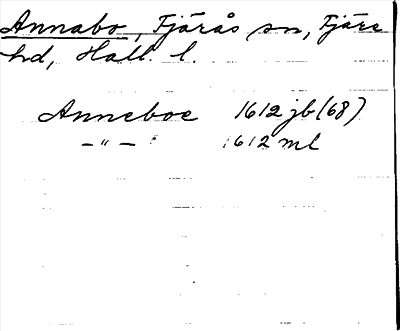 Annabo, Fjärås sn, Fjäre
hd, Hall. l.
Anneboe 1612 jb (68)
–"– 1612 ml